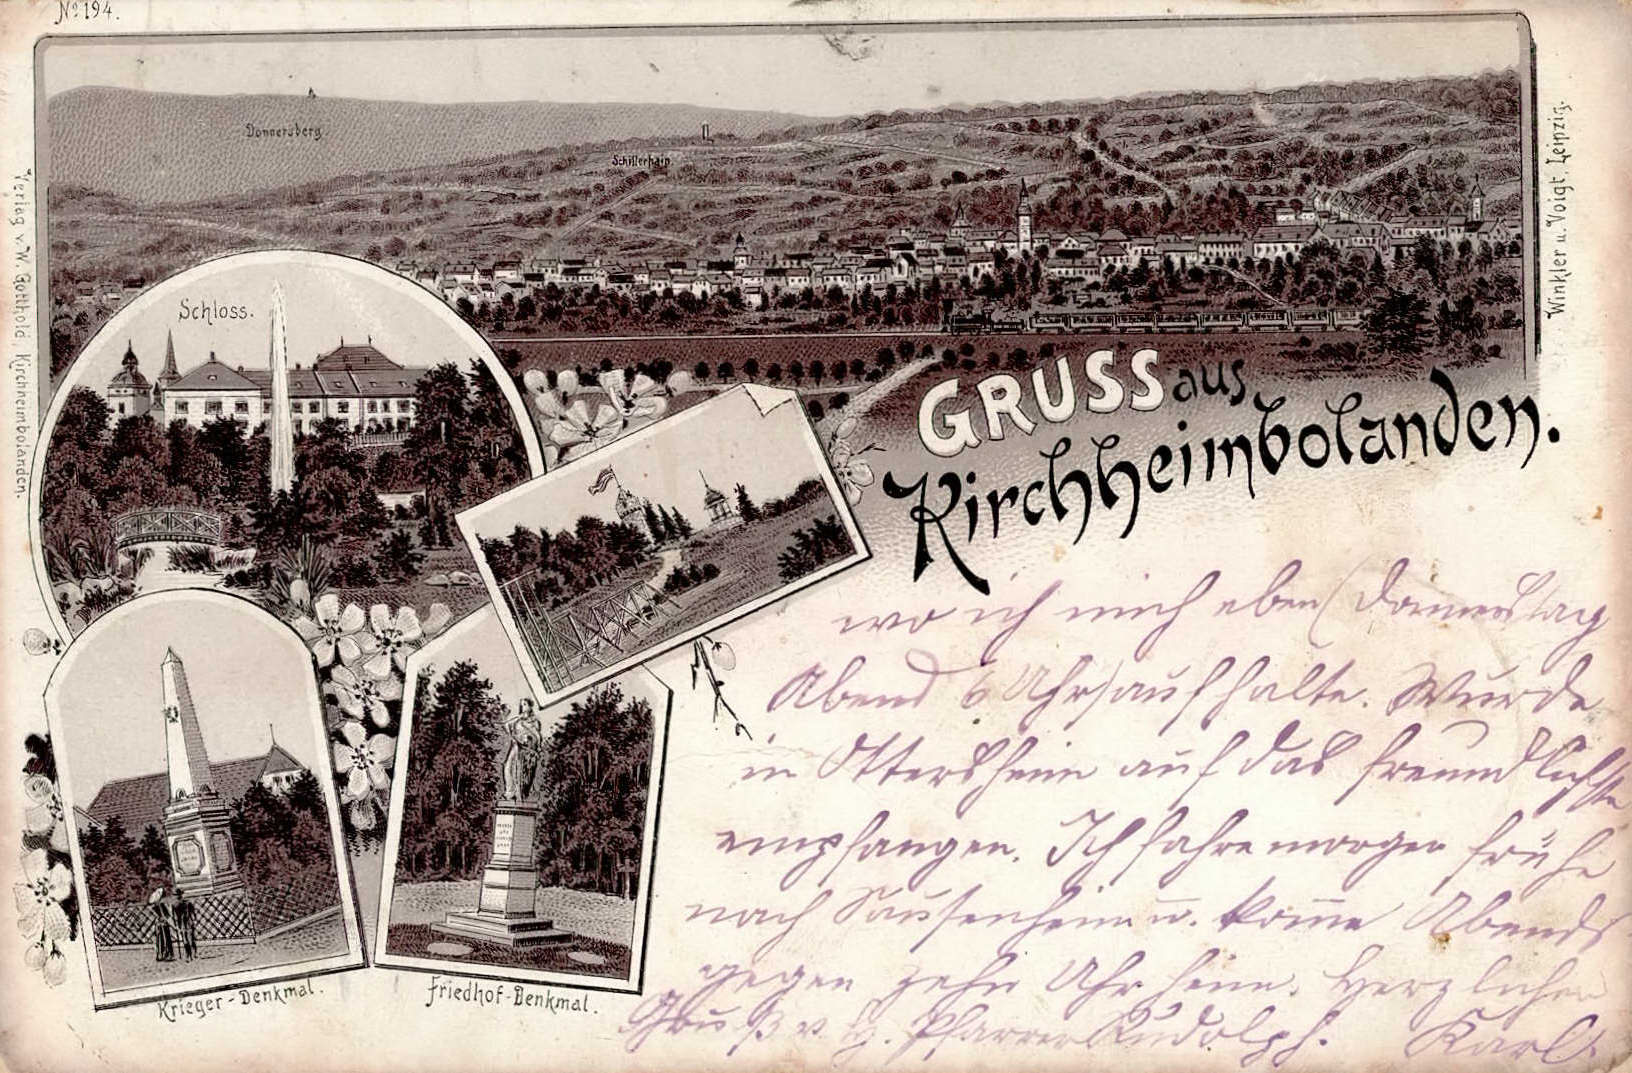 No 194.
Donnersberg
Schillerhain
Schloss.
Verlag v. W. Gotthold, Kirchheimbolanden.
Winkler u. Voigt, Leipzig.
GRUSS aus
Kirchheimbolanden.
Krieger-Denkmal.
Friedhof-Denkmal.
wo ich mich eben (Donnerstag
Abend 6 Uhr) aufhalte. Wurde
in Ottersheim auf das freundlichste
empfangen. Ich fahre morgen frühe
nach Sausenheim u. komme Abends
gegen zehn Uhr heim. Herzlichen
Gruß v. H. Pfarrer Rudolph. Karl.